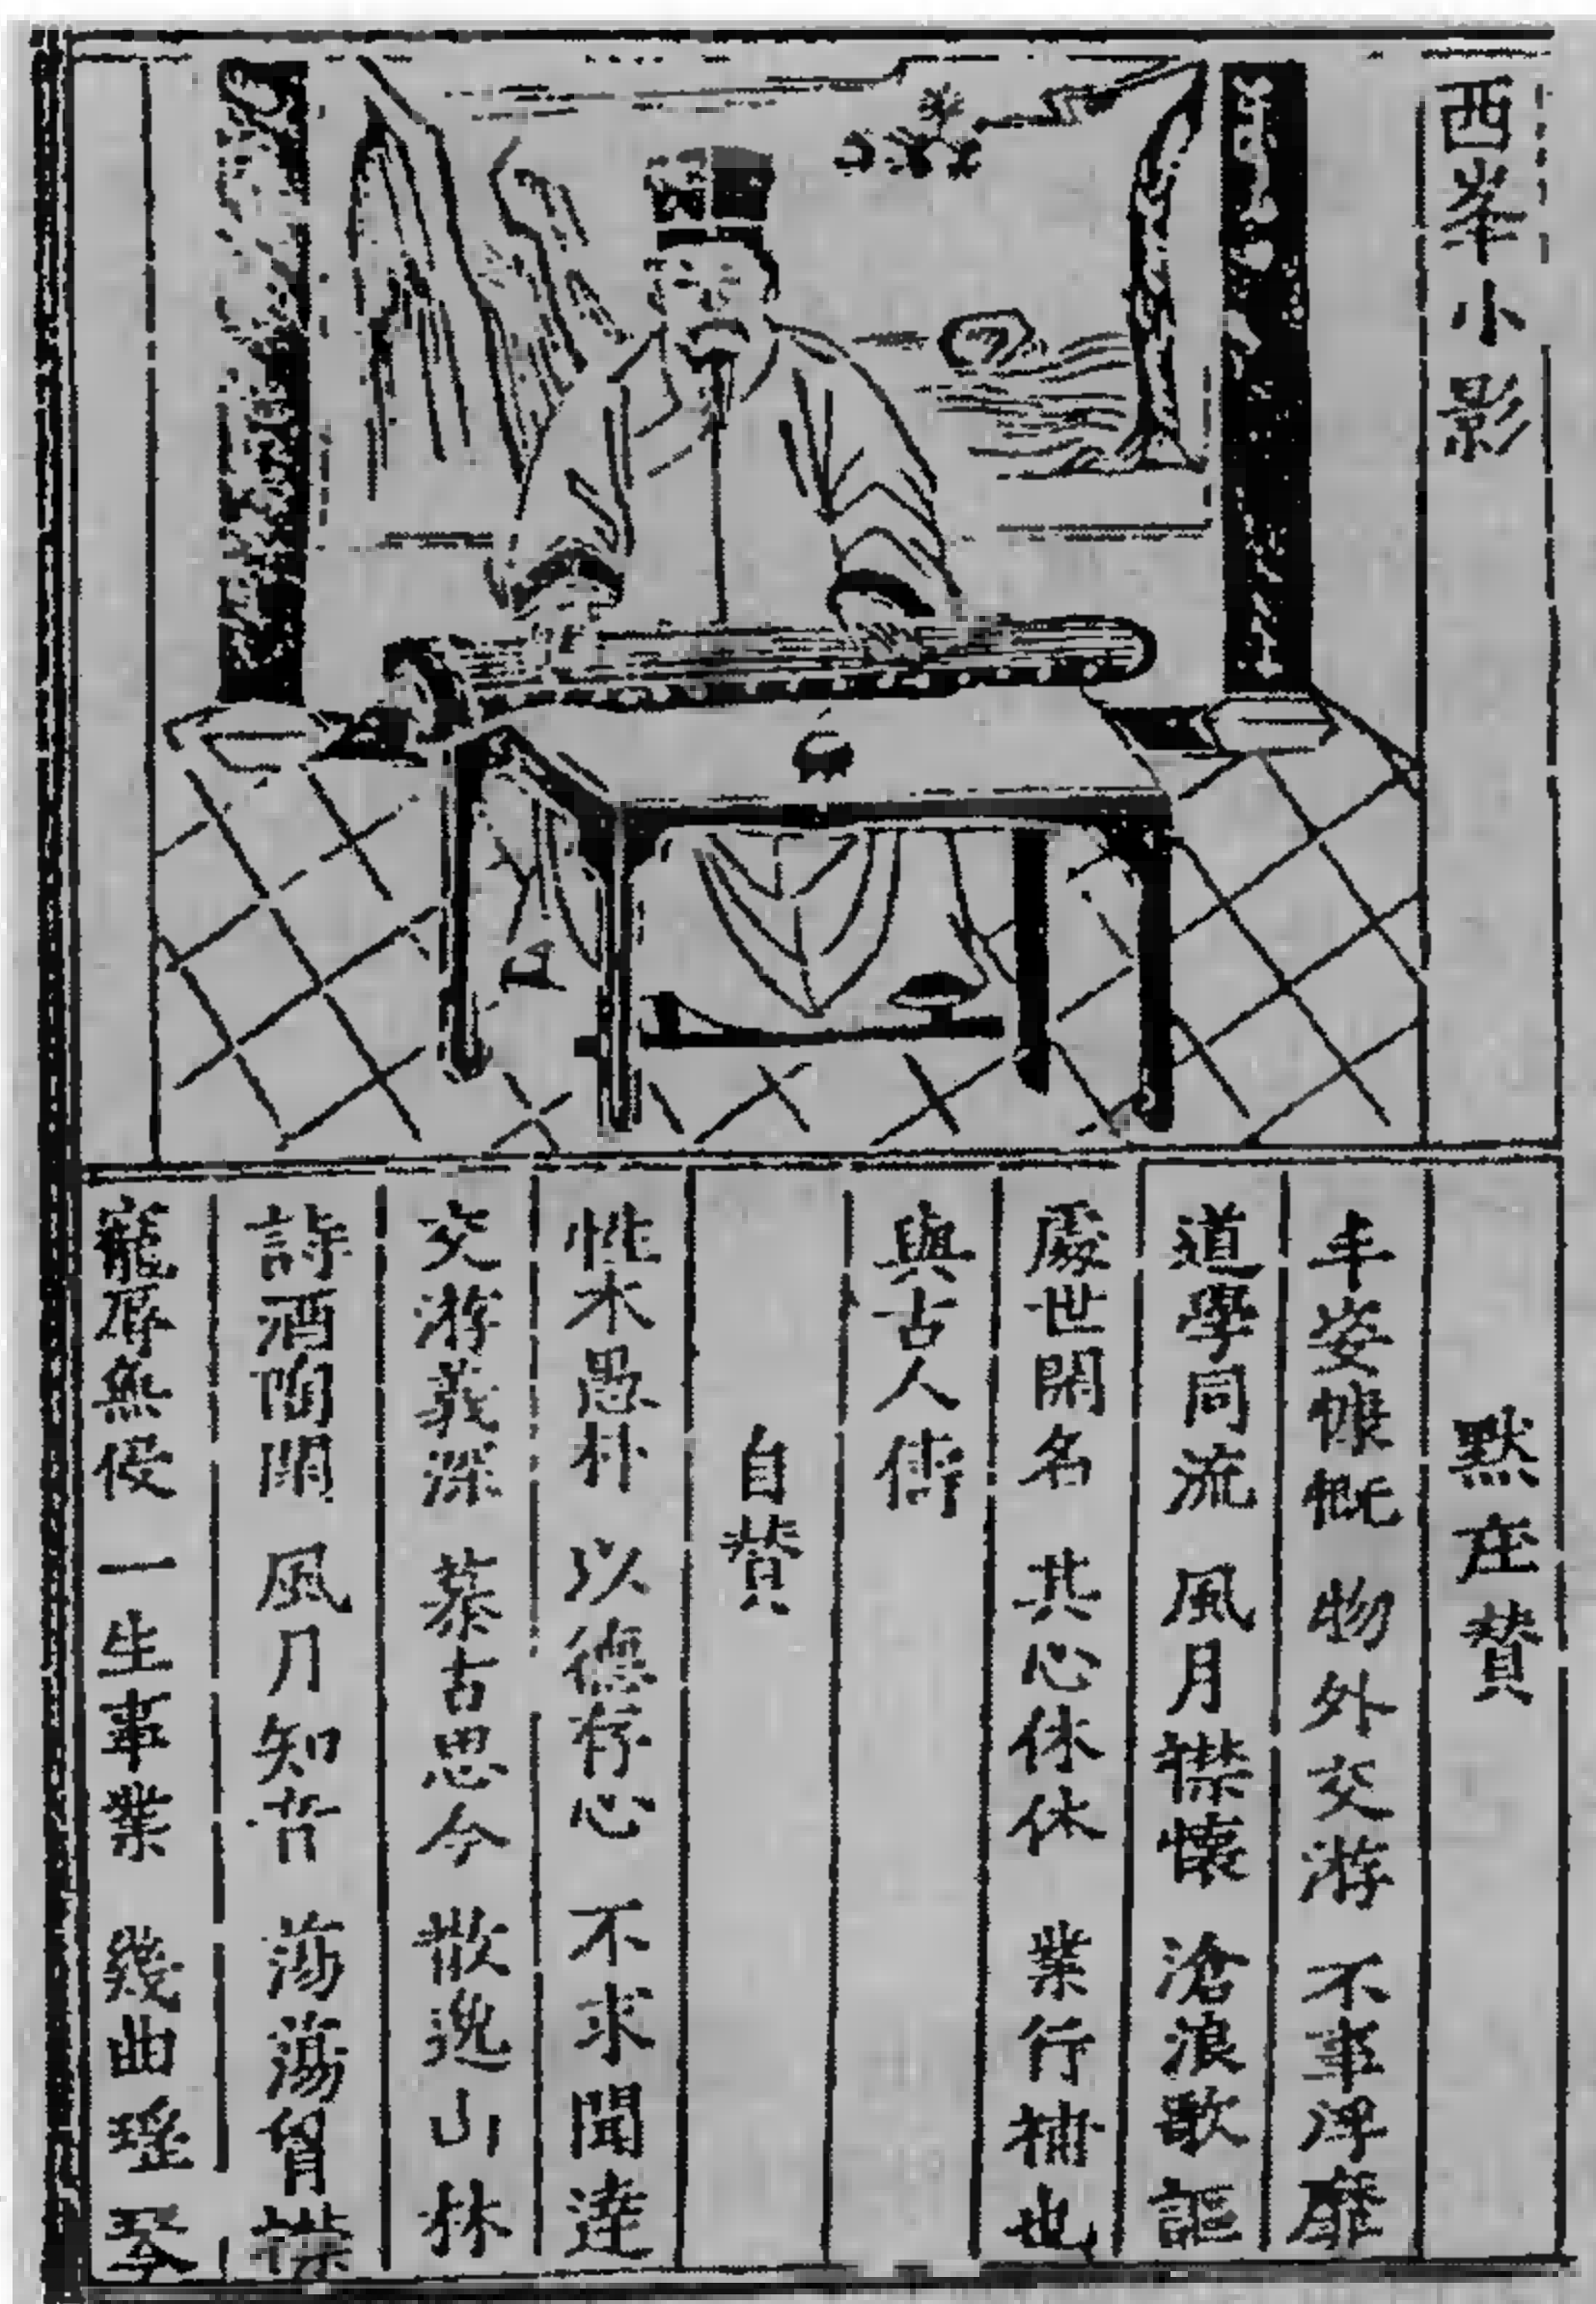 西峯小影
默庄賛
丰姿慷慨 物外交游 不事浮靡
道學同流 風月襟懷 滄浪歌謳
處世閑名 其心休休 業行補也
與古人儔
自賛
性本愚朴 以德存心 不求聞達
交游義深 慕古思今 散逸山林
詩酒陶閑 風月知音 蕩蕩胷襟
寵辱無侵 一生事業 幾曲瑤琴